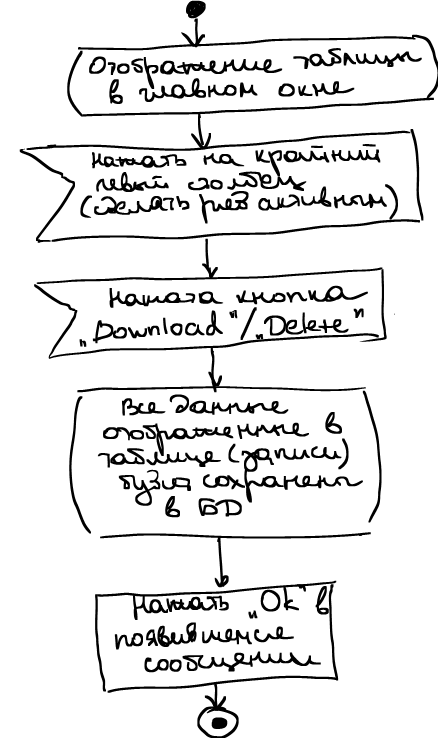 Отображение таблицы
в главном окне
Нажать на крайний
левый столбец
(сделать рез активным)
Нажата кнопка
„Download"/„Delete"
Все данные
отображенные в
таблице (записи)
будут сохранены
в БД
Нажать „Ok" в
появившемся
сообщении